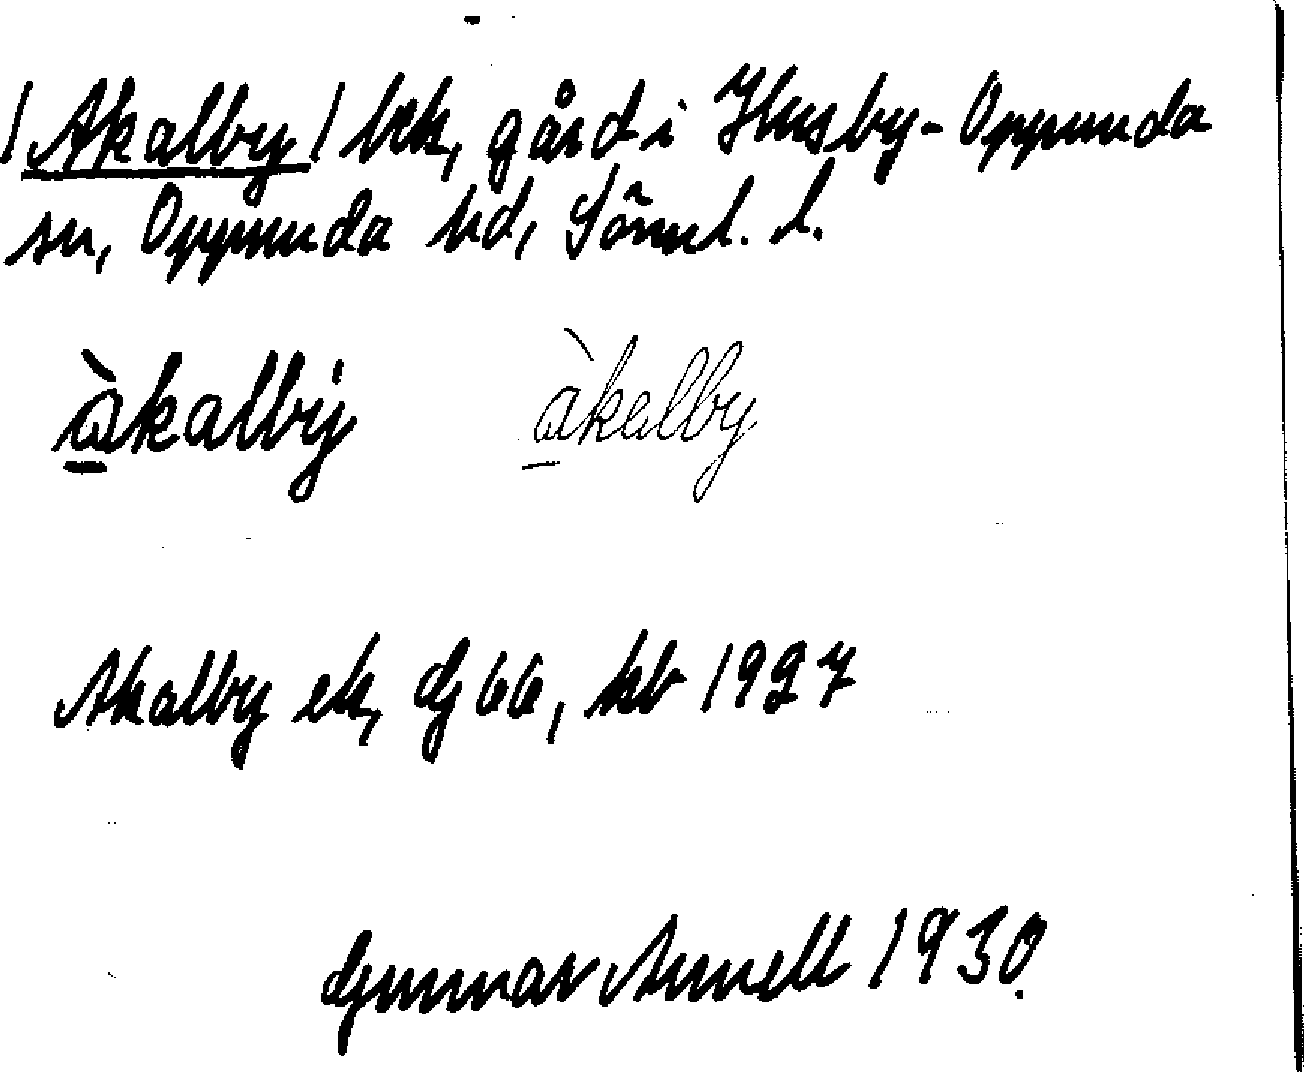 /Akalby/ bek, gård i Husby-Oppunda
sn, Oppunda hd, Sörml. l.
àkalby̍ àkalby
Akalby ek, Gj 66, kb 1927
Gunnar Arnell 1930.